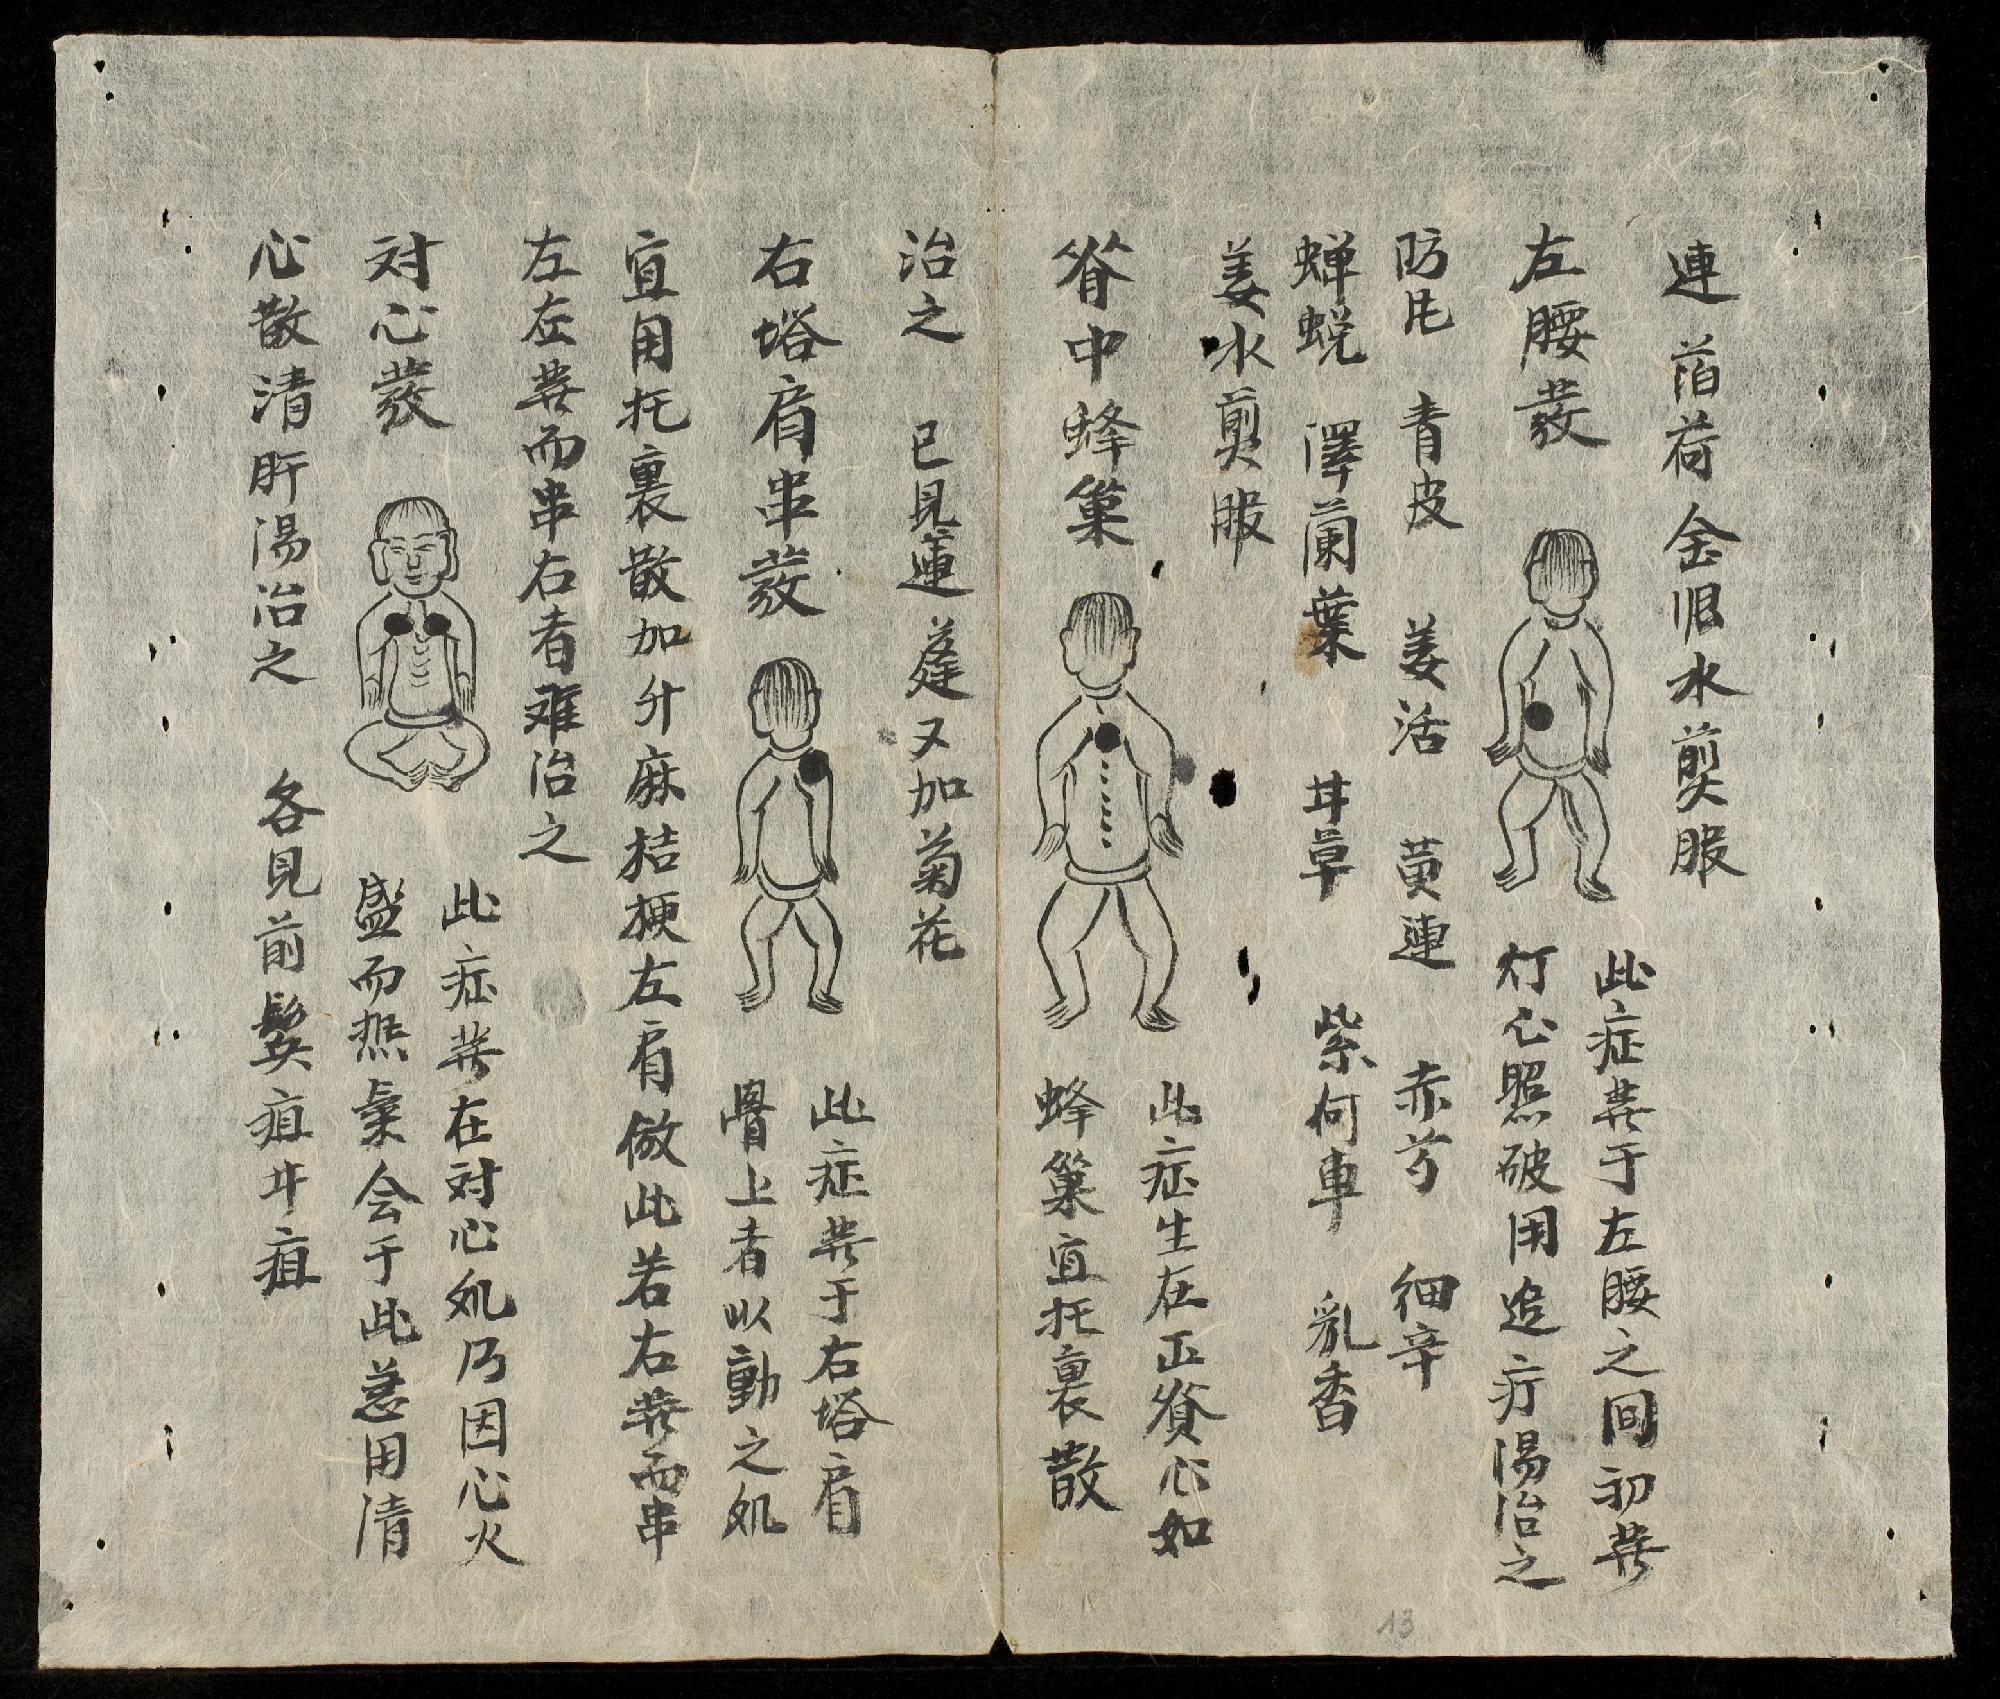 連 萡荷 金艮水煎服
左腰發
此症發于左腰之間初發
灯心照破用追疔湯治之
防风 青皮 羌活 黄連 赤芍 细辛
蝉蜕 澤蘭葉 甘草 紫何車 乳香
姜水煎服
脊中蜂巢
此症生在正脊心如
蜂巢宜托裏散
治之 已見蓮蓬又加菊花
右塔肩串發
此症發于右塔肩
骨上者以動之処
宜用托裏散加升麻桔梗左肩倣此若右發而串
左左發而串右者难治之
对心發
此症發在对心処乃因心火
盛而热氣会于此急用清
心散清肝湯治之 各見前鬓疽中疽
13